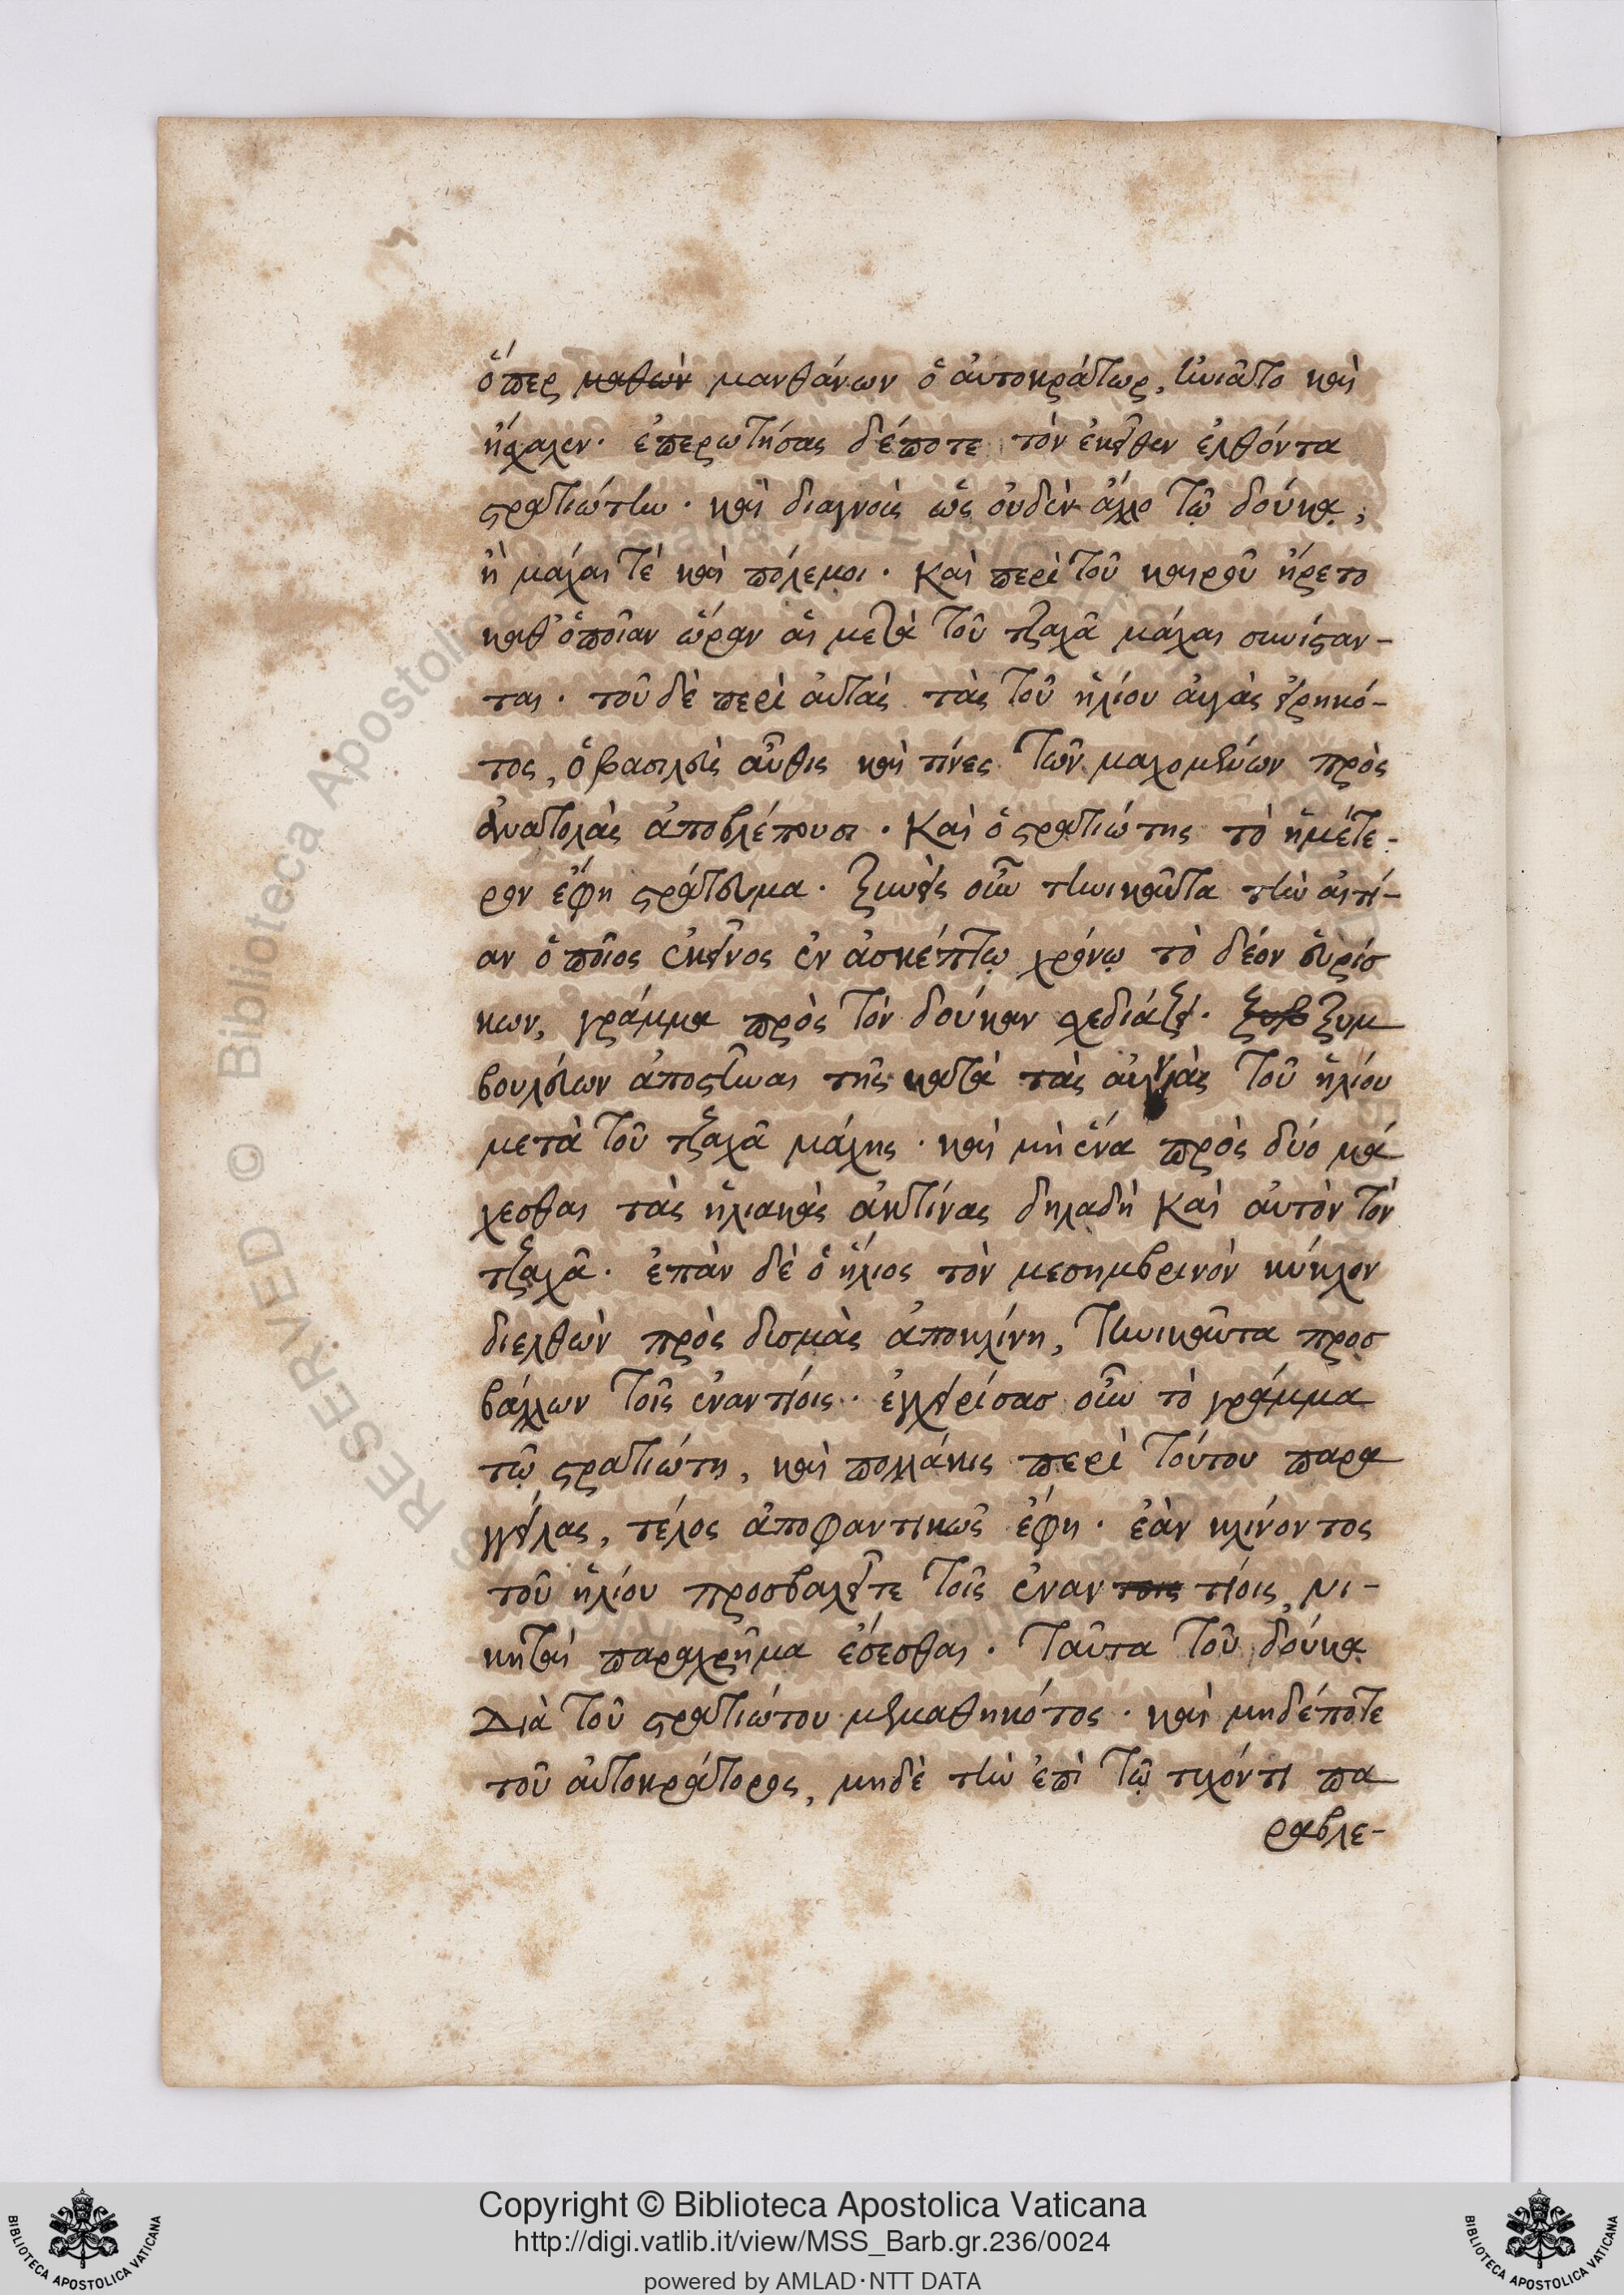 ὅπερ μαθὼν μανθάνων ὁ αὐτοκράτωρ, ἠνιᾶτο καὶ
ἤσχαλεν· ἐπερωτήσας δέποτε τὸν ἐκεῖθεν ἐλθόντα
στρατιώτην· καὶ διαγνοὺς ὡς οὐδὲν ἄλλο τῷ δούκᾳ,
ἢ μάχαι τὲ καὶ πόλεμοι· Καὶ περὶ τοῦ καιροῦ ἤρετο
καθ' ὁποῖαν ὥραν αἱ μετὰ τοῦ τζαχᾶ μάχαι συνίσταν-
ται· τοῦ δὲ περὶ αὐτὰς τὰς τοῦ ἡλίου αὐγὰς εἰρηκό-
τος, ὁ βασιλεὺς αὖθις καὶ τίνες τῶν μαχομένων πρὸς
ἀνατολὰς ἀποβλέπουσι· Καὶ ὁ στρατιώτης τὸ ἡμέτε-
ρον ἔφη στράτευμα· ξυνεὶς οὖν τηνικαῦτα τὴν αἰτί-
αν ὁποῖος ἐκεῖνος ἐν ἀσκέπτῳ χρόνῳ τὸ δέον εὑρίσ
κων, γράμμα πρὸς τὸν δούκαν σχεδιάζει· ξυβ ξυμ
βουλεύων ἀποστῆναι τῆς κατὰ τὰς αὐγὰς τοῦ ἡλίου
μετὰ τοῦ τζαχᾶ μάχης· καὶ μὴ ἕνα πρὸς δύο μά
χεσθαι τὰς ἡλιακὰς ἀκτίνας δηλαδὴ Καὶ αὐτὸν τὸν
τζαχᾶ· ἐπὰν δὲ ὁ ἥλιος τὸν μεσημβρινὸν κύκλον
διελθὼν πρὸς δυσμὰς ἀποκλίνῃ, τηνικαῦτα προσ
βάλλων τοῖς ἐναντίοις· ἐγχειρίσας οὖν τὸ γράμμα
τῷ στρατιώτῃ, καὶ πολλάκις περὶ τούτου παρα
γγείλας, τέλος ἀποφαντικῶς ἔφη· ἐὰν κλίνοντος
τοῦ ἡλίου προσβαλεῖτε τοῖς ἐναντοις τίοις, νι-
κηταὶ παραχρῆμα ἔσεσθαι· Ταῦτα τοῦ δούκα
Διὰ τοῦ στρατιώτου μεμαθηκότος· καὶ μηδέποτε
τοῦ αὐτοκράτορος, μηδὲ τὴν ἐπὶ τῷ τυχόντι πα
ραβλε-
Copyright © Biblioteca Apostolica Vaticana
http://digi.vatlib.it/view/MSS_Barb.gr.236/0024
powered by AMLAD·NTT DATA
BIBLIOTECA APOSTOLICA VATICANA
BIBLIOTECA APOSTOLICA VATICANA